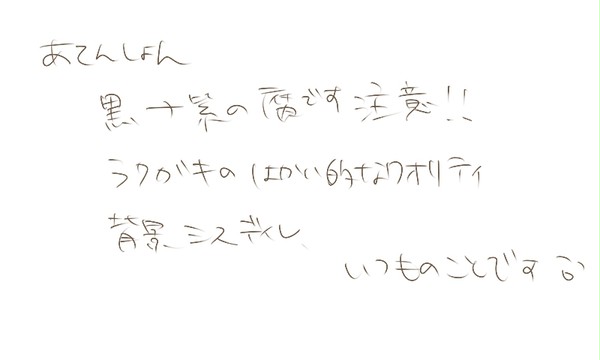 あてんしょん
黒→紫の腐です注意!!
ラクガキのはかい的なクオリティ
背景ミスディレ
いつものことです